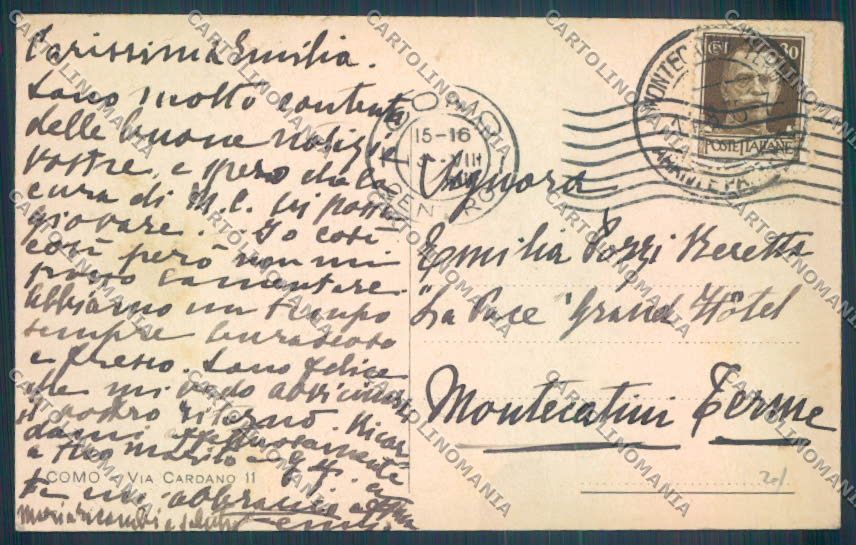 Carissima Emilia.
Sono molto contenta
delle buone notizie
vostre, e spero che la
cura di M.C. vi possa
giovare. Io così
così però non mi
posso lamentare.
Abbiamo un tempo
sempre burascoso
e fresco. Sono felice
che mi vedo avvicinare
il vostro ritorno. Ricor
dami affettuosamente
a tuo marito e
COMO - VIA CARDANO 11
te un abbraccio
Maria ricambia saluti
COMO
15-16
VIII
CENTRO
MONTECATINI
CENT 30
POSTE ITALIANE
Signora
Emilia Pozzi Beretta
"La Pace" Grand Hôtel
Montecatini Terme
CARTOLINOMANIA